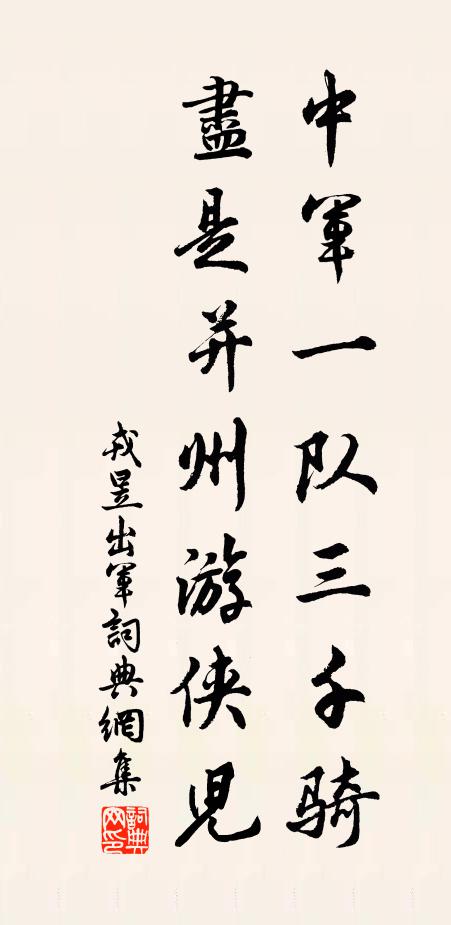 中軍一队三千骑
盡是并州游侠児
戎昱出軍詞典網集
詞典网印